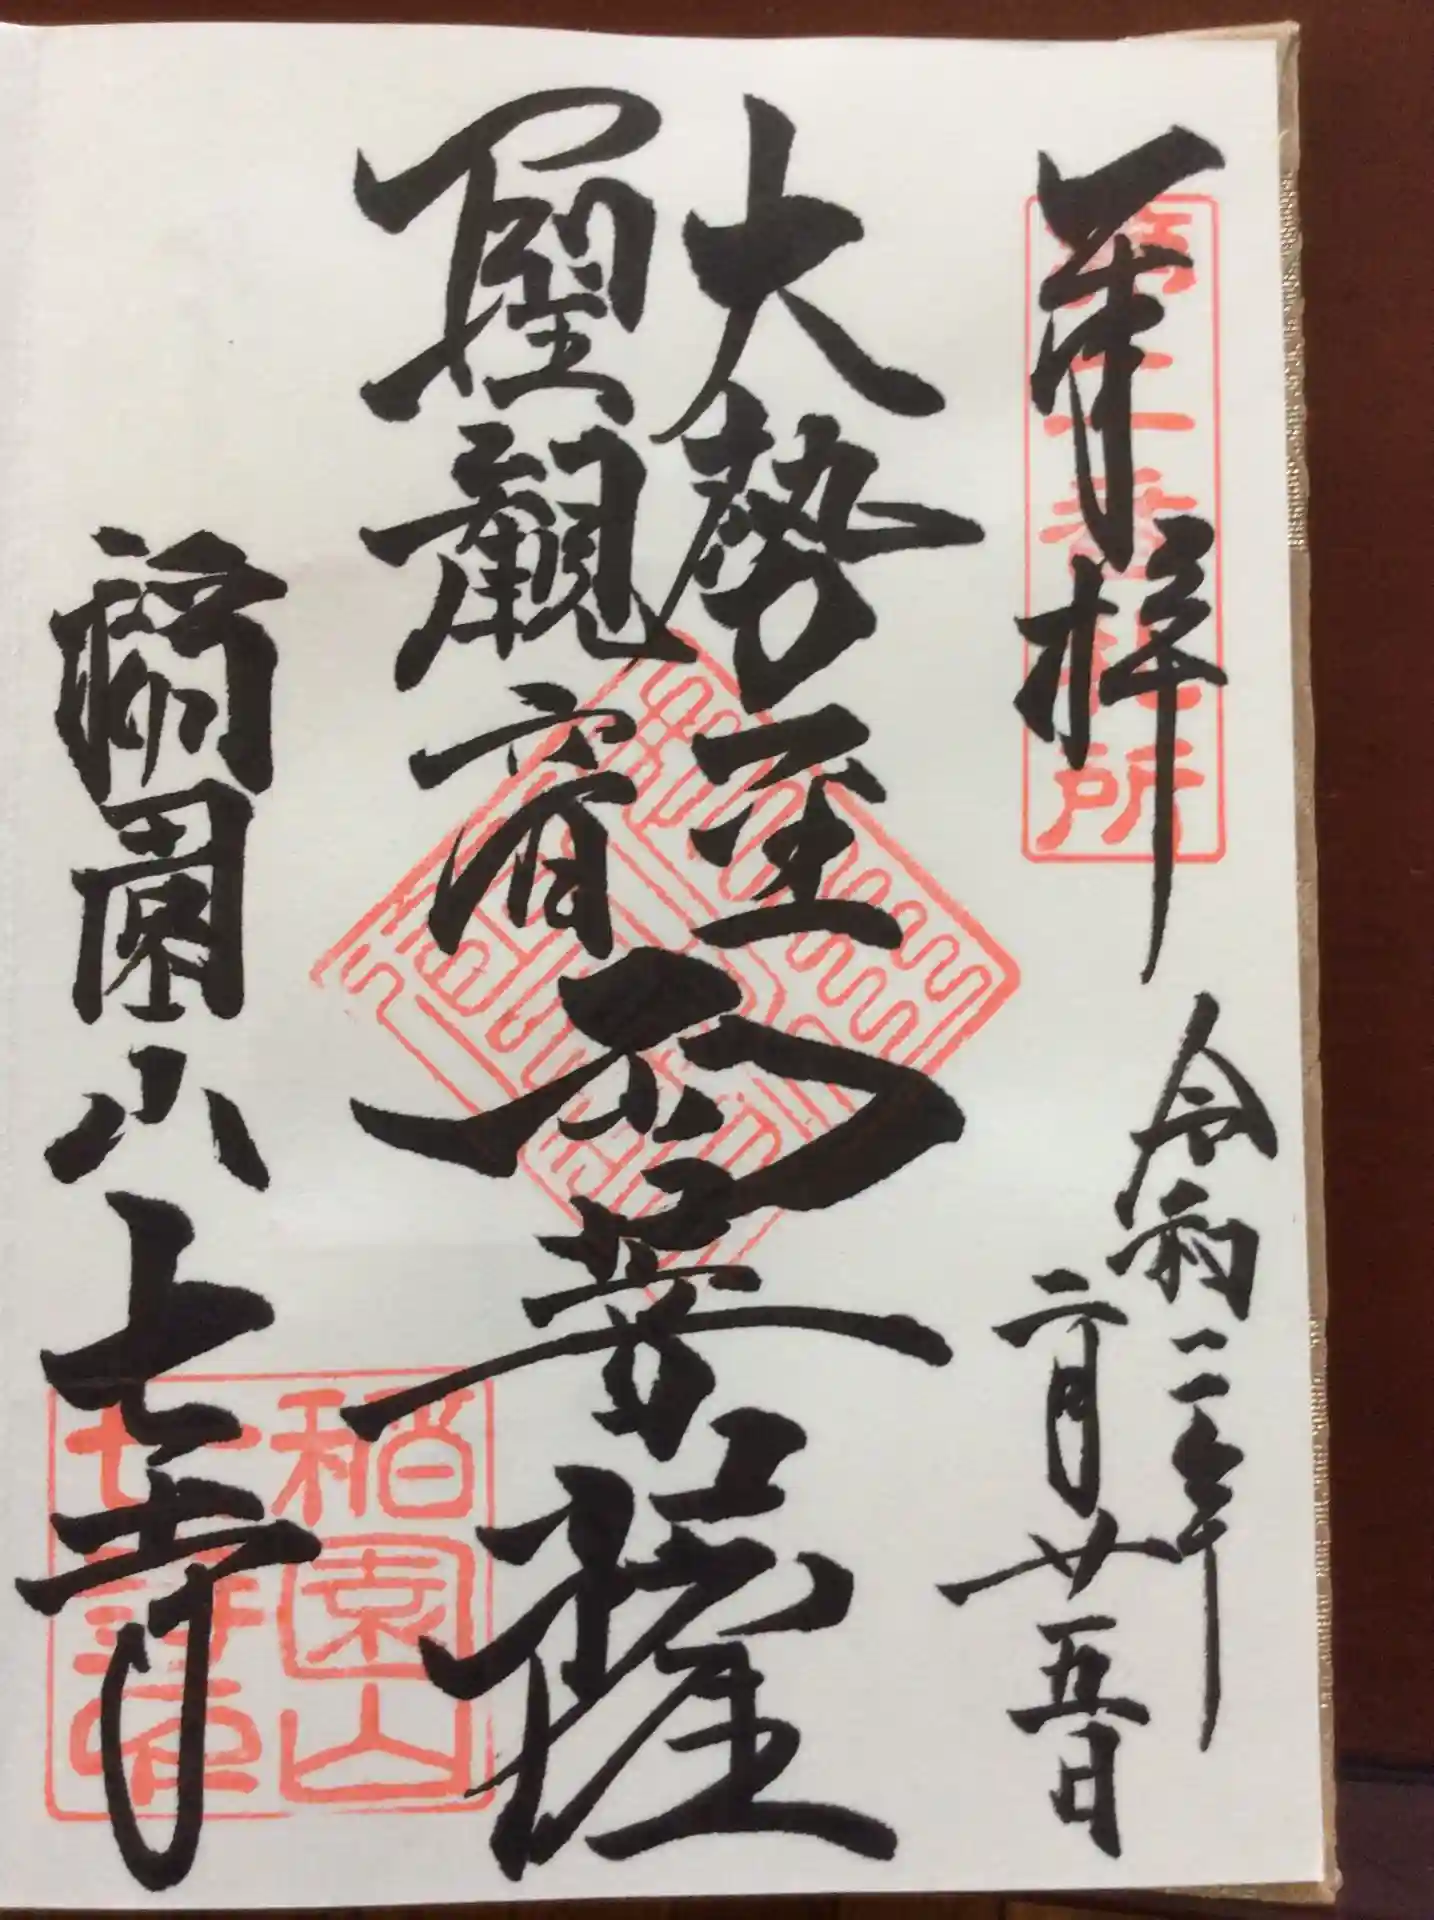 奉拝
令和二年
二月廿五日
大勢至
聖觀音
両菩薩
稲園山七寺
番札所
稲園山
七寺印